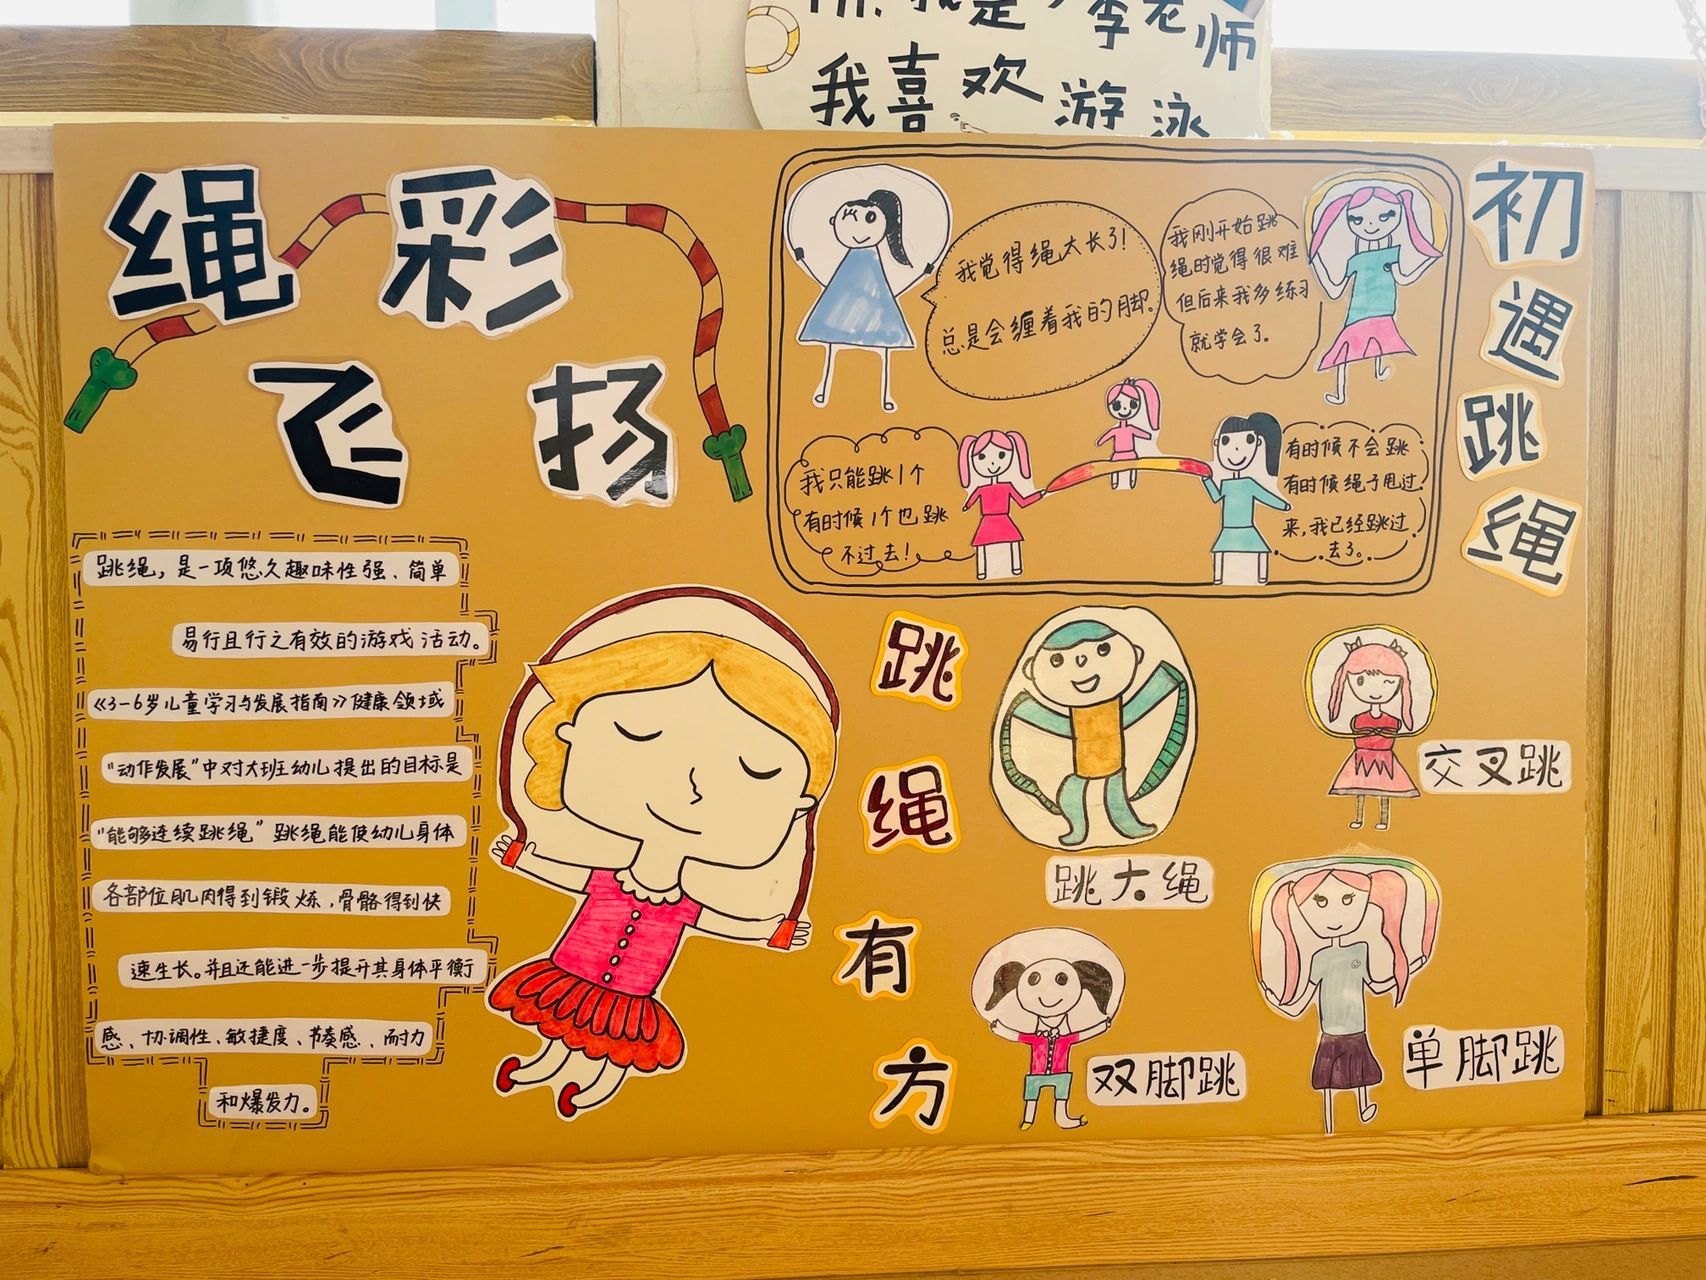 我是
李老师
我喜欢游泳
绳彩
飞扬
跳绳，是一项悠久趣味性强、简单
易行且行之有效的游戏活动。
《3-6岁儿童学习与发展指南》健康领域
"动作发展"中对大班幼儿提出的目标是
"能够连续跳绳，"跳绳能使幼儿身体
各部位肌肉得到锻炼，骨骼得到快
速生长。并且还能进一步提升其身体平衡
感、协调性、敏捷度、节奏感、耐力
和爆发力。
初遇跳绳
我觉得绳太长了！
总是会缠着我的脚。
我刚开始跳
绳时觉得很难
但后来我多练习
就学会了。
我只能跳1个
有时候1个也跳
不过去！
有时候不会跳
有时候绳子甩过
来，我已经跳过
去了。
跳绳有方
跳大绳
交叉跳
双脚跳
单脚跳